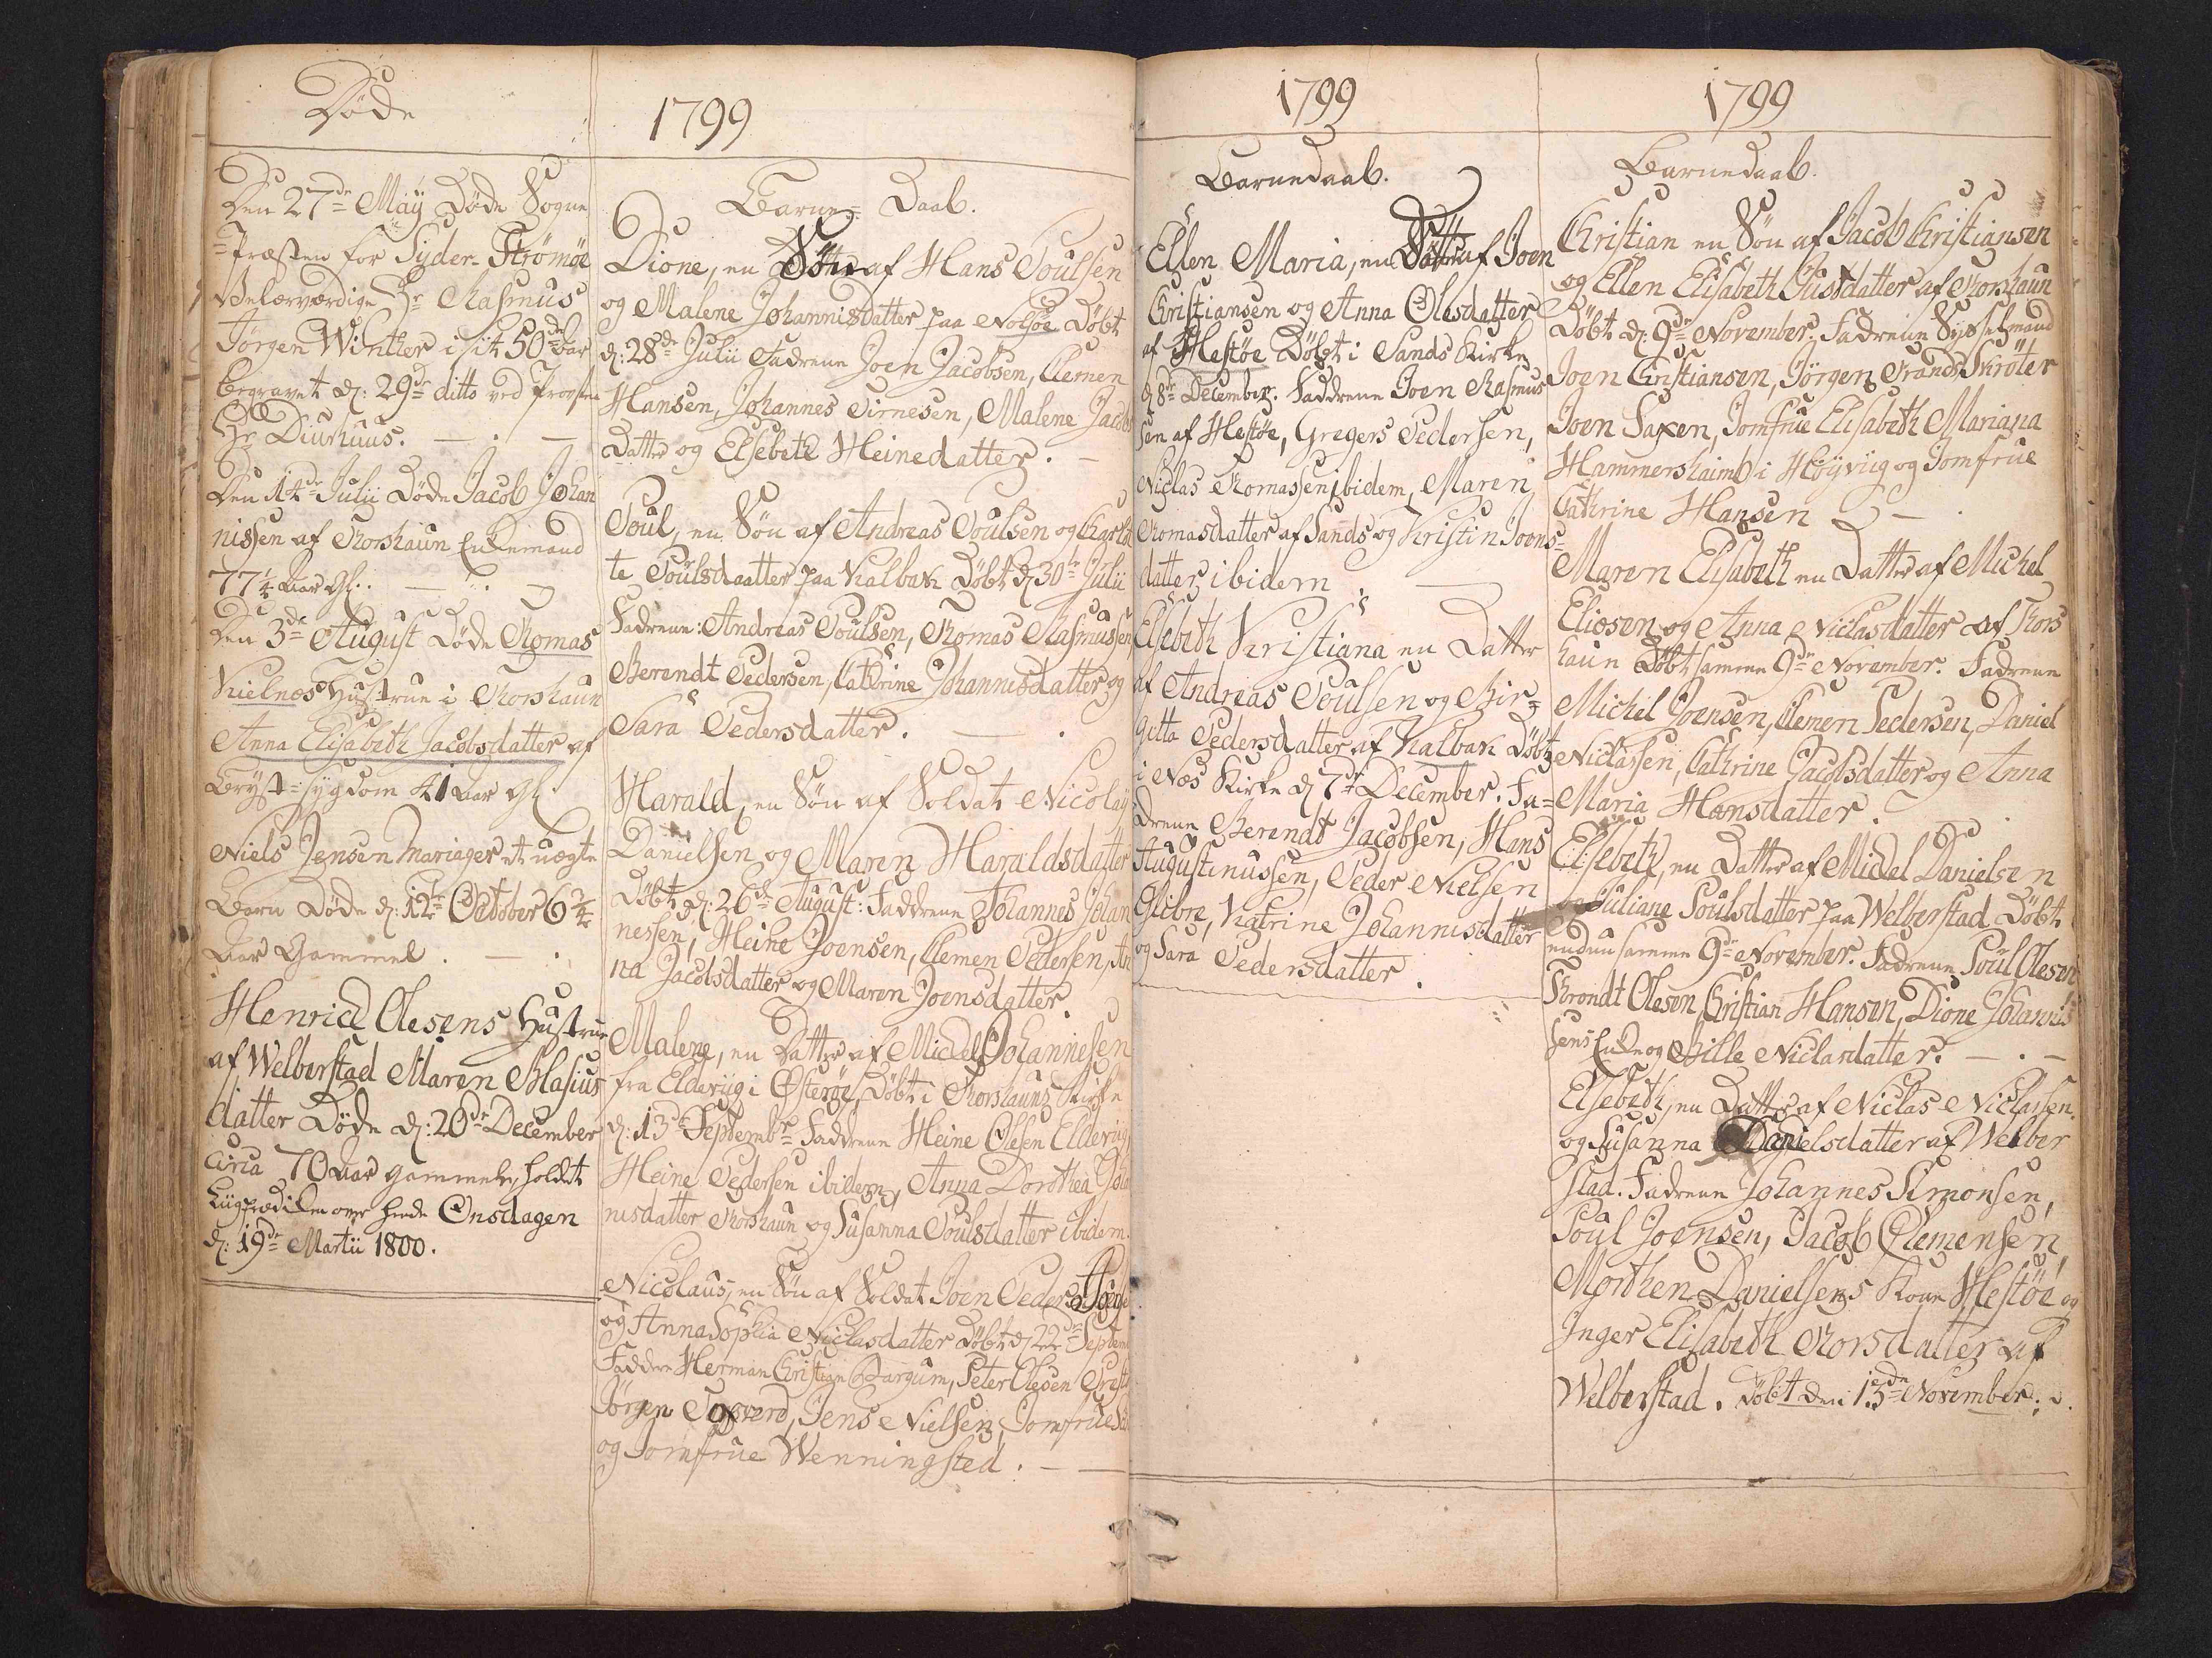 Døde
Den 27de May Døde Sogne
=Præsten for Syder-Strømøe
Velærværdige Hr Rasmus
Jørgen Winther i sit 50de Aar
begravet d: 29de ditto ved Provsten
Hr Diurhuus.
Den 14de Julii Døde Jacob Johan
nissen af Thorshaun Enkemand
77 1/4 Aar Gl:
Den 3de August Døde Thomas
Kielnes Hustrue i Thorshaun
Anna Elisabeth Jacobsdatter af
Bryst=sygdom 41 Aar Gl:
Niels Jensen Mariager et uægte
Barn Døde d: 12te October 6 3/4
Aar Gammel.
Henrick Olesens Hustrue
af Welberstad Maren Blasius
datter Døde d: 20de December
circa 70 Aar gammel, holdet
Liigprædiken over hende Onsdagen
d: 19de Martii 1800.
1799
Barne= Daab.
Dione, en Søn af Hans Poulsen
og Malene Johannisdatter paa Nolsøe Døbt
d: 28de Julii Fadrene Joen Jacobsen, Clemen
Hansen, Johannes Virnesen, Malene Jacobs
Datter og Elsebeth Heinedatter.
Poul, en Søn af Andreas Poulsen og
te Poulsdaatter paa Kalbak Døbt d 30te Julii
Fadrene: Andreas Poulsen, Thomas Rasmussen,
Berendt Pedersen, Cathrine Johannisdatter og
Sara Pedersdatter.
Harald, en Søn af Soldat Nicolay
Danielsen og Maren Haraldsdatter
Døbt d: 26de August: Faddrene Johannes Johan
nessen, Heine Joensen, Clemen Pedersen, An
na Jacobsdatter og Maren Joensdatter.
Malene, en Datter af Michel Johannesen
fra Elderiig i Østerøe, Døbt i Thorshauns Kirke
d: 13de Septembr Faddrene Heine Olesen Elderiig
Heine Pedersen ibidem, Anna Dorothea Joha
nisdatter Thorshaun og Susanna Poulsdatter ibidem.
Nicolaus, en Søn af Soldat Joen Peder
og Anna Sophia Niclasdatter Døbt d 22de Septem
Faddre Herman Christian Bargum, Peter Olesen
Jørgen Jens Nielsen, Jomfrue
og Jomfrue Wenningsted.
1799
Barnedaab.
Ellen Maria, en Datter af Joen
Christiansen og Anna Olesdatter
af Hestøe Døbt i Sands Kirke
d 8de December. Faddrene Joen Rasmus
sen af Hestøe, Gregers Pedersen,
Niclas Thomassen ibidem, Maren
Thomasdatter af Sands og Kristin Joens=
datter ibidem
Elsebeth Kristiana en Datter
af Andreas Poulsen og Bir=
gitta Pedersdatter af Kalbak Døbt
i Næs Kirke d 7de December. Fa=
drene Berendt Jacobsen, Hans
Augustinussen, Peder Nielsen
Glibre, Katrine Johannisdatter
og Sara Pedersdatter.
1799
Barnedaab.
Christian en Søn af Jacob Christiansen
og Ellen Elisabeth Justdatter af Thorshaun
Døbt d. 9de November. Fadrene Sysselmand
Joen Christiansen, Jørgen Frands Skrøter
Joen Saxen, Jomfrue Elisabeth Mariana
Hammershaimb i Høyviig og Jomfrue
Cathrine Hansen
Maren Elisabeth en Datter af Michel
Eliesen og Anna Niclasdatter af Thors
haun Døbt samme 9de November. Fadrene
Michel Joensen, Clemen Pedersen, Daniel
Niclassen, Cathrine Jacobsdatter og Anna
Maria Hansdatter.
Elsebeth, en Datter af Michel Danielsen
og Juliane Poulsdatter paa Welberstad Døbt
endnu samme 9de November. Fadrene Poul Olesen
Throndt Olesen, Christian Hansen, Dione Johannis
sens Enke og Bille Niclasdatter.
Elsebeth, en Datter af Niclas Niclassen
og Susanna Danielsdatter af Welber
stad. Fadrene Johannes Simonsen,
Poul Joensen, Jacob Clemensen,
Morthen Danielsens Kone Hestøe og
Inger Elisabeth Thorsdatter af
Welberstad. Døbt den 13de November.